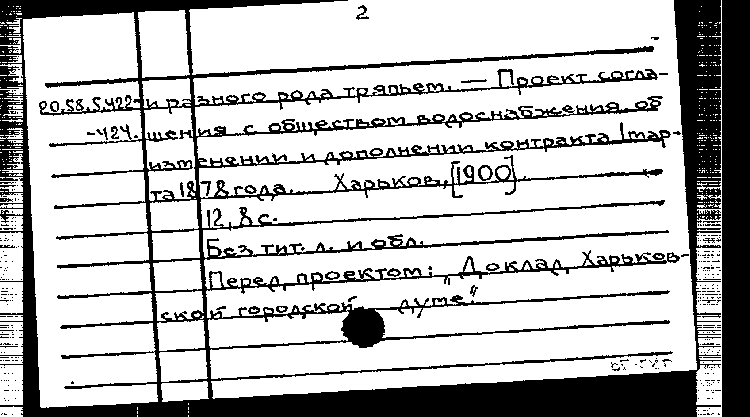 2
20.58.5.422- и разного рода тряпьем. — Проект согла-
-424. шения с обществом водоснабжения об
изменении и дополнении контракта 1 мар-
та 1878 года. Харьков, [1900].
12, 8 с.
Без тит. л. и обл.
Перед проектом: „Доклад Харьков-
ской городской думе“